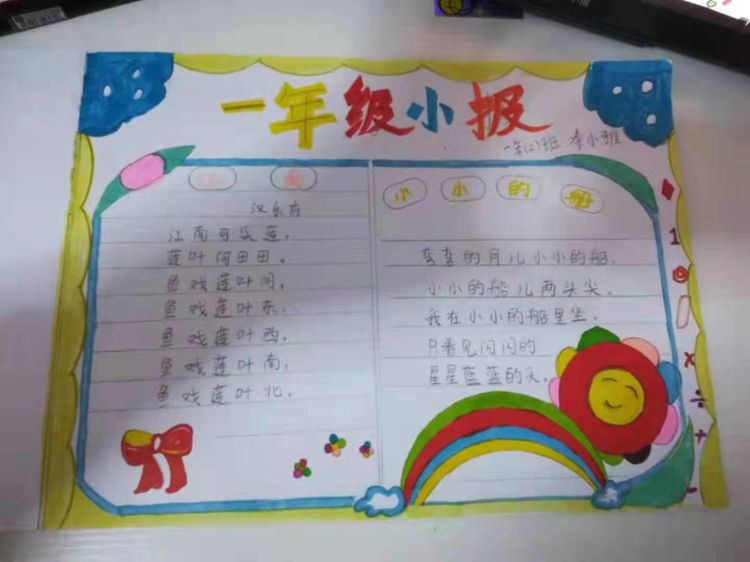 一年级小报
一年(2)班 秦小雅
江南
汉乐府
江南可采莲，
莲叶何田田。
鱼戏莲叶间，
鱼戏莲叶东，
鱼戏莲叶西，
鱼戏莲叶南，
鱼戏莲叶北。
小小的船
弯弯的月儿小小的船，
小小的船儿两头尖。
我在小小的船里坐，
只看见闪闪的
星星蓝蓝的天。
1
0
×
÷
+